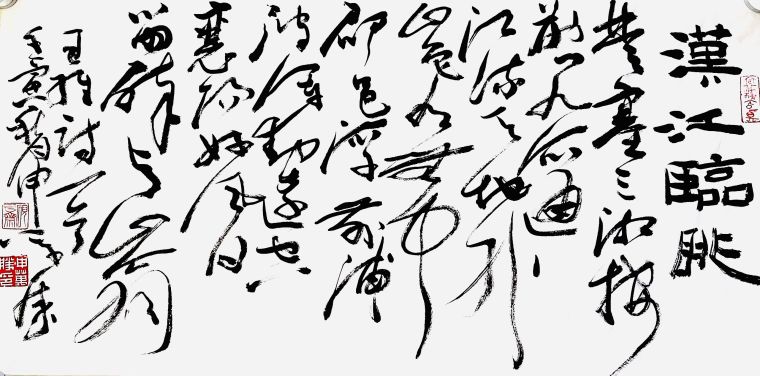 漢江臨眺
楚塞三湘接
荆门九派通
江流天地外
山色有無中
郡邑浮前浦
波瀾動遠空
襄陽好風日
留醉与山翁
王維詩一首
壬寅